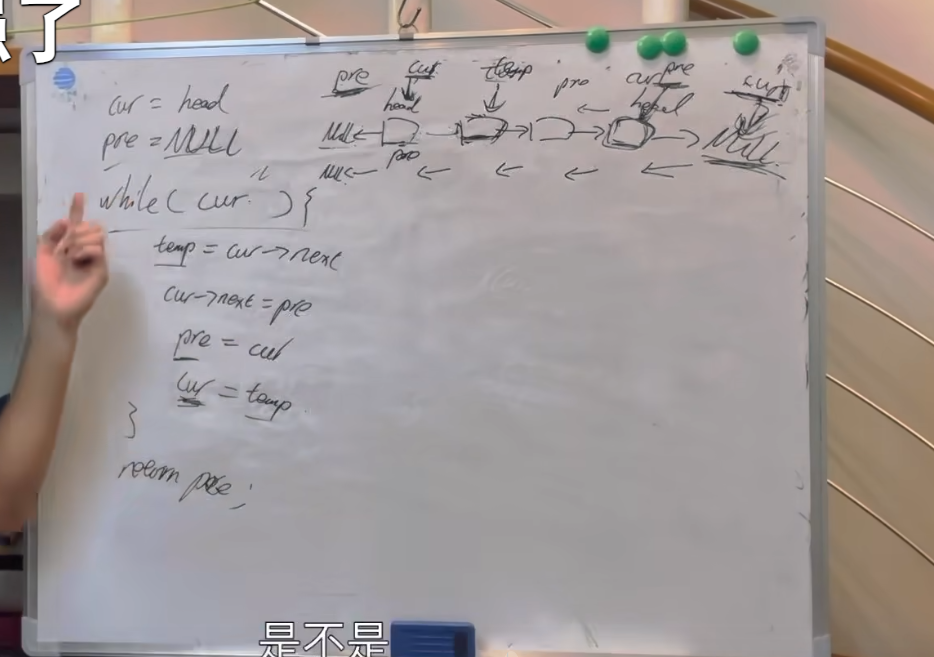 了
pre cur temp pre cur pre cur
head head
cur = head
pre = NULL
NULL NULL
pre
NULL
while ( cur ) {
temp = cur->next
cur->next = pre
pre = cur
cur = temp
}
return pre;
是不是